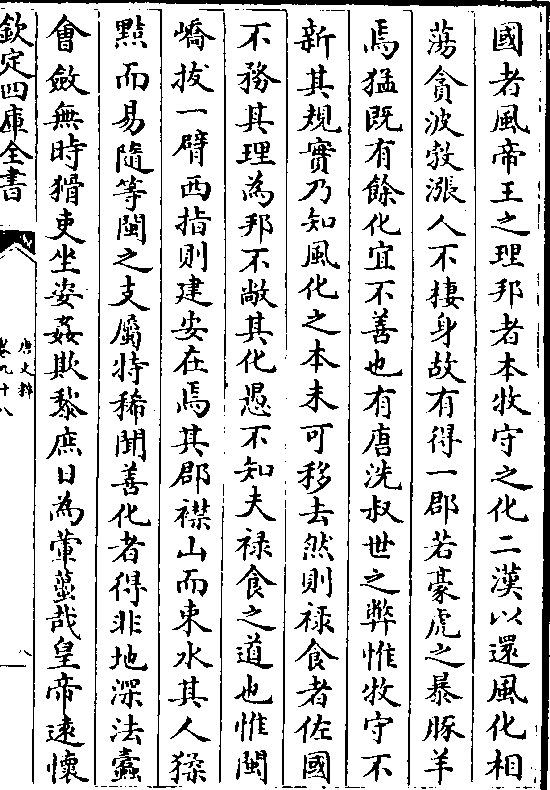 國者風帝王之理邦者本牧守之化二漢以還風化相
蕩貪波敖漲人不棲身故有得一郡若豪虎之暴豚羊
焉猛既有餘化宜不善也有唐洗叔世之弊惟牧守不
新其規實乃知風化之本未可移去然則祿食者佐國
不務其理為邦不敞其化愚不知夫祿食之道也惟閩
嶠拔一臂西指則建安在焉其郡襟山而束水其人猱
黠而易隨等閩之支屬特稀聞善化者得非地深法蠹
會斂無時猾吏坐姿姦欺黎庶日為葷蘁哉皇帝遠懷
欽定四庫全書
唐文粹
卷九十八